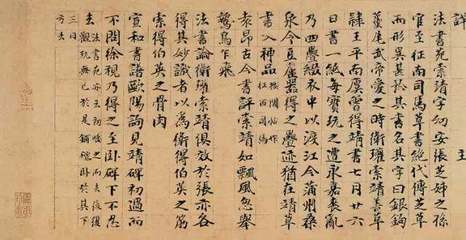 法書苑索靖字幼安張芝姊之孫
官至征南司馬草書絕代傳芝草
而形異甚矜其書名其字曰銀鉤
蠆尾武帝愛之時衛瓘索靖善草
隸王平南廙曾得靖書七月廿六
日書一紙每寶玩之遭永嘉喪亂
乃四疊綴衣中以渡江今蒲州桑
泉令豆盧器得之疊迹猶在靖草
書入神品
袁昂古今書評索靖如飄風忽舉
鷙鳥乍飛
法書論衛瓘索靖俱效於張芝各
得其妙識者以為衛得伯英之筋
索得伯英之骨肉
宣和書譜歐陽詢見靖碑初過而
不問徐視乃得之至臥碑下不忍
去
三日
方去